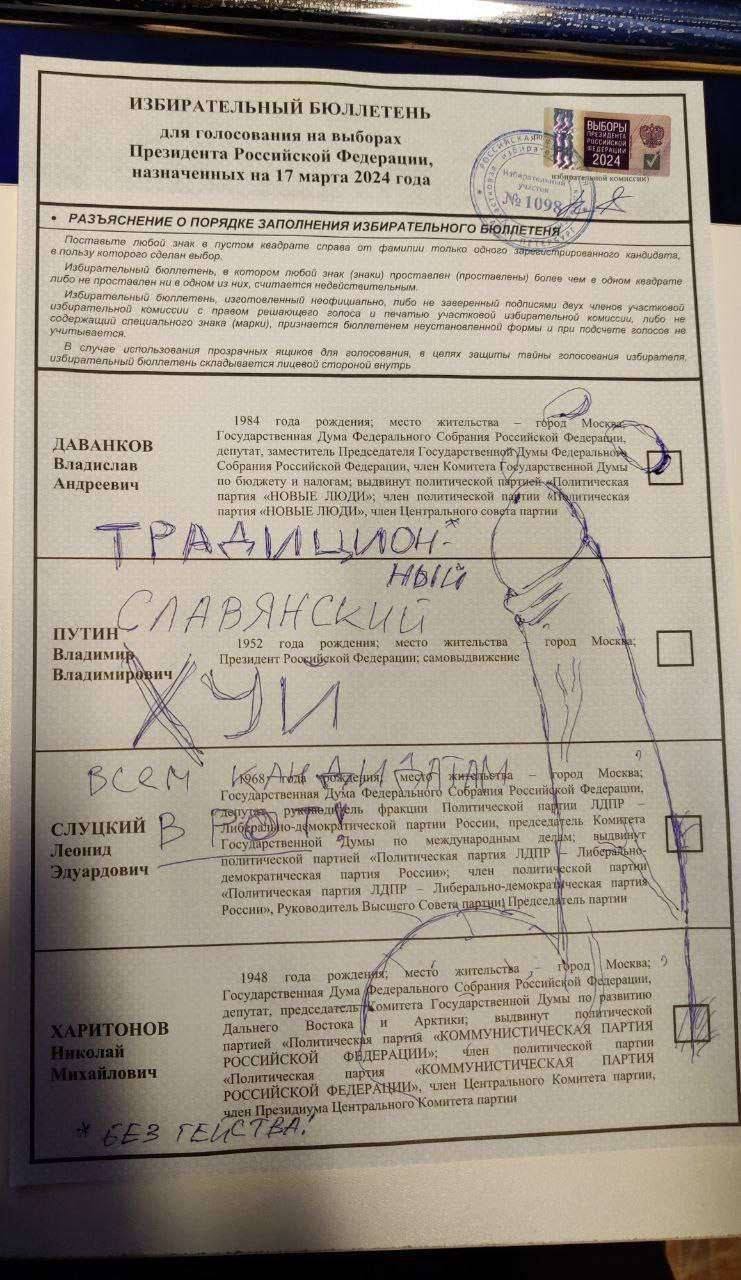 ИЗБИРАТЕЛЬНЫЙ БЮЛЛЕТЕНЬ
для голосования на выборах
Президента Российской Федерации,
назначенных на 17 марта 2024 года
ВЫБОРЫ
ПРЕЗИДЕНТА
РОССИЙСКОЙ
ФЕДЕРАЦИИ
2024
избирательной комиссии)
РОССИЙСКАЯ
Избирательный
участок
№ 1098
• РАЗЪЯСНЕНИЕ О ПОРЯДКЕ ЗАПОЛНЕНИЯ ИЗБИРАТЕЛЬНОГО БЮЛЛЕТЕНЯ
Поставьте любой знак в пустом квадрате справа от фамилии только одного зарегистрированного кандидата,
в пользу которого сделан выбор.
Избирательный бюллетень, в котором любой знак (знаки) проставлен (проставлены) более чем в одном квадрате
либо не проставлен ни в одном из них, считается недействительным.
Избирательный бюллетень, изготовленный неофициально, либо не заверенный подписями двух членов участковой
избирательной комиссии с правом решающего голоса и печатью участковой избирательной комиссии, либо не
содержащий специального знака (марки), признается бюллетенем неустановленной формы и при подсчете голосов не
учитывается.
В случае использования прозрачных ящиков для голосования, в целях защиты тайны голосования избирателя,
избирательный бюллетень складывается лицевой стороной внутрь
ДАВАНКОВ
Владислав
Андреевич
1984 года рождения; место жительства – город Москва;
Государственная Дума Федерального Собрания Российской Федерации,
депутат, заместитель Председателя Государственной Думы Федерального
Собрания Российской Федерации, член Комитета Государственной Думы
по бюджету и налогам; выдвинут политической партией «Политическая
партия «НОВЫЕ ЛЮДИ»; член политической партии «Политическая
партия «НОВЫЕ ЛЮДИ», член Центрального совета партии
ТРАДИЦИОН-*
НЫЙ
СЛАВЯНСКИЙ
ПУТИН
Владимир
Владимирович
1952 года рождения; место жительства – город Москва;
Президент Российской Федерации; самовыдвижение
ХУЙ
ВСЕМ КАНДИДАТАМ
В РОТ!
СЛУЦКИЙ
Леонид
Эдуардович
1968 года рождения; место жительства – город Москва;
Государственная Дума Федерального Собрания Российской Федерации,
депутат, руководитель фракции Политической партии ЛДПР –
Либерально-демократической партии России, председатель Комитета
Государственной Думы по международным делам; выдвинут
политической партией «Политическая партия ЛДПР – Либерально-
демократическая партия России»; член политической партии
«Политическая партия ЛДПР – Либерально-демократическая партия
России», Руководитель Высшего Совета партии, Председатель партии
ХАРИТОНОВ
Николай
Михайлович
1948 года рождения; место жительства – город Москва;
Государственная Дума Федерального Собрания Российской Федерации,
депутат, председатель Комитета Государственной Думы по развитию
Дальнего Востока и Арктики; выдвинут политической
партией «Политическая партия «КОММУНИСТИЧЕСКАЯ ПАРТИЯ
РОССИЙСКОЙ ФЕДЕРАЦИИ»; член политической партии
«Политическая партия «КОММУНИСТИЧЕСКАЯ ПАРТИЯ
РОССИЙСКОЙ ФЕДЕРАЦИИ», член Центрального Комитета партии,
член Президиума Центрального Комитета партии
* БЕЗ ГЕЙСТВА!